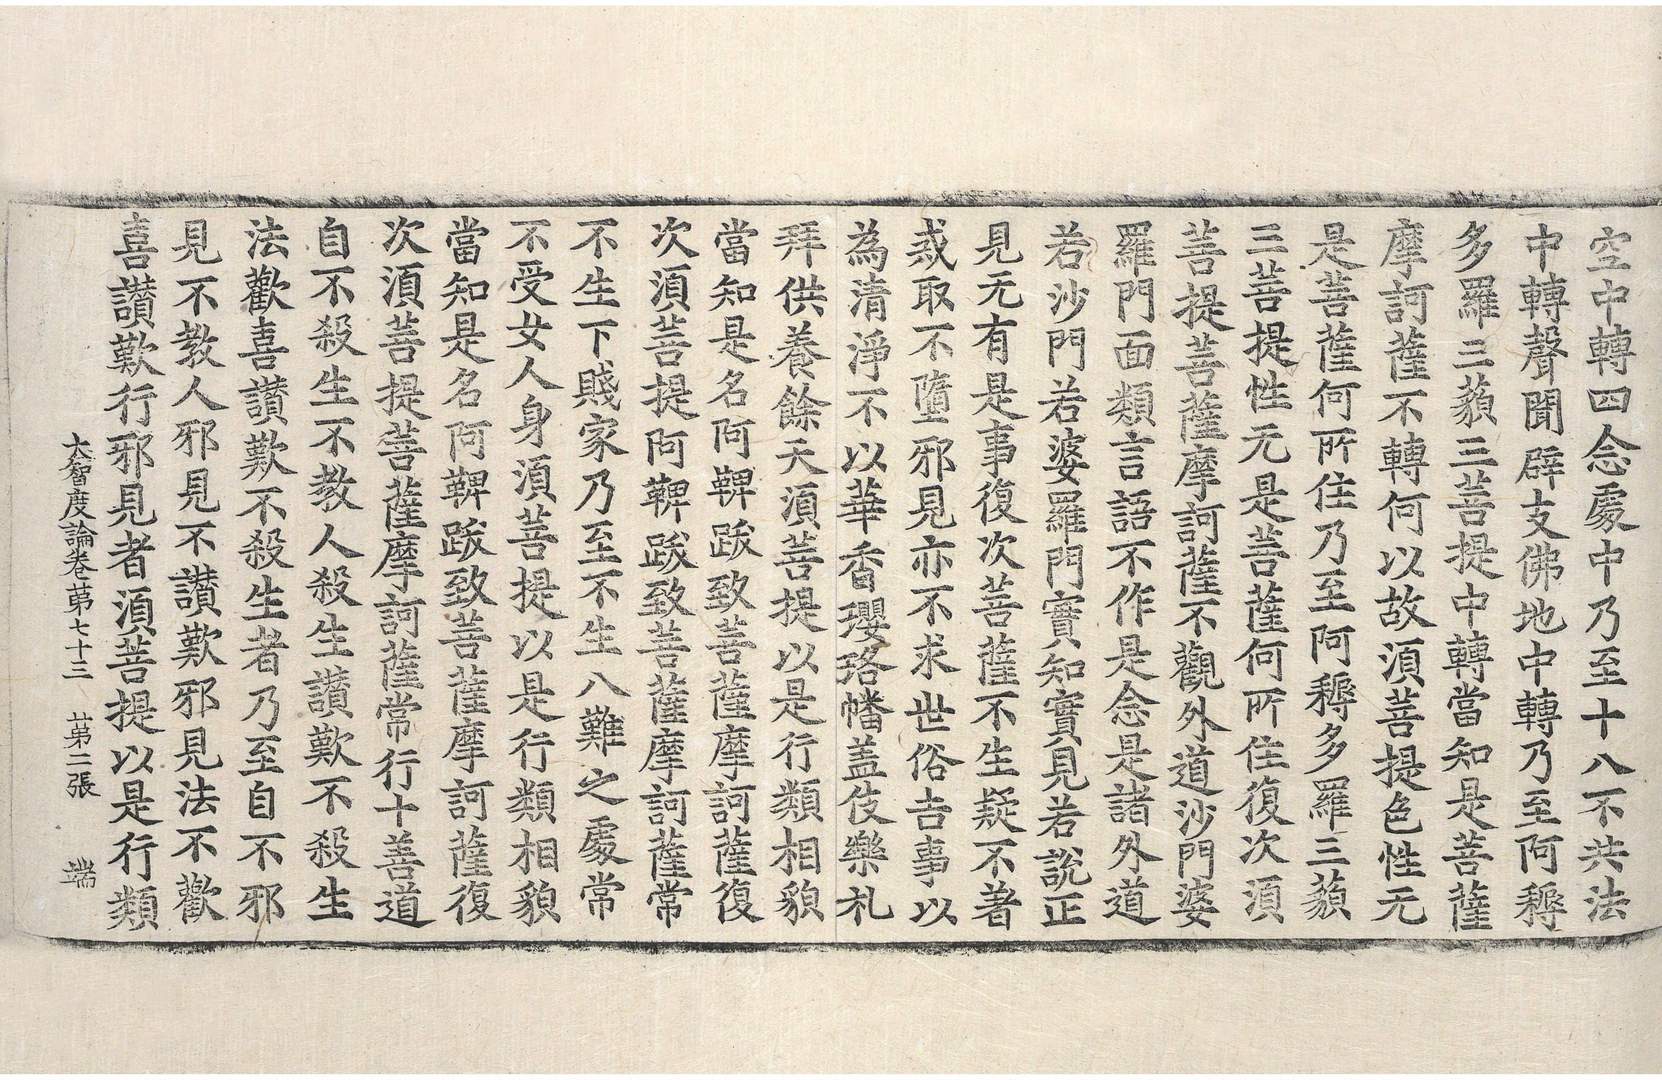 空中轉四念處中乃至十八不共法
中轉聲聞辟支佛地中轉乃至阿耨
多羅三藐三菩提中轉當知是菩薩
摩訶薩不轉何以故須菩提色性无
是菩薩何所住乃至阿耨多羅三藐
三菩提性无是菩薩何所住復次須
菩提菩薩摩訶薩不觀外道沙門婆
羅門面類言語不作是念是諸外道
若沙門若婆羅門實知實見若說正
見无有是事復次菩薩不生疑不著
戒取不墮邪見亦不求世俗吉事以
為清淨不以華香瓔珞幡盖伎樂札
拜供養餘天須菩提以是行類相貌
當知是名阿鞞跋致菩薩摩訶薩復
次須菩提阿鞞跋致菩薩摩訶薩常
不生下賤家乃至不生八難之處常
不受女人身須菩提以是行類相貌
當知是名阿鞞跋致菩薩摩訶薩復
次須菩提菩薩摩訶薩常行十善道
自不殺生不教人殺生讃歎不殺生
法歡喜讃歎不殺生者乃至自不邪
見不教人邪見不讃歎邪見法不歡
喜讃歎行邪見者須菩提以是行類
大智度論卷苐七十三 苐二張 端